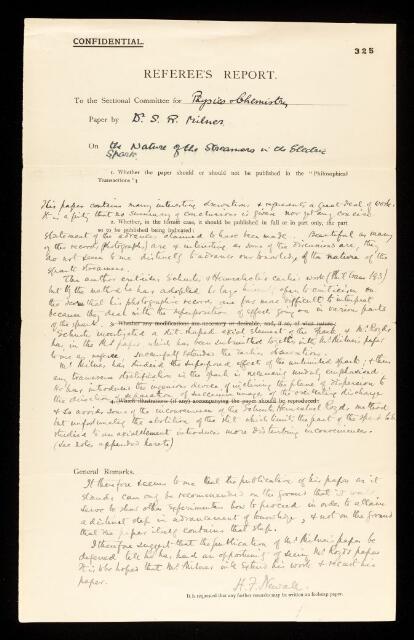 CONFIDENTIAL.
325
REFEREE'S REPORT.
To the Sectional Committee for Physics & Chemistry
Paper by Dr. S. R. Milner
On the Nature of the Streamers in the Electric
Spark.
1. Whether the paper should or should not be published in the "Philosophical
Transactions";
This paper contains many interesting observations & represents a great deal of work.
It is a pity that no summary of conclusions is given nor yet any concise
2. Whether, in the former case, it should be published in full or in part only, the part
so to be published being indicated:
statement of the advances claimed to have been made. Beautiful as many
of the records (photographs) are & interesting as some of the discussions are, they
do not seem to me distinctly to advance our knowledge of the nature of the
spark streamers.
The author criticises Schuster & Hemsalech's earlier work (Phil. Trans. 193)
but by the method he has adopted to lays himself open to criticism on
the score that his photographic records are far more difficult to interpret
because they deal with the superposition of effects going on in various parts
of the spark.
3. Whether any modifications are necessary or desirable, and, if so, of what nature:
Schuster investigated a slit-shaped axial element of the spark & Mr. Royds
has, in the paper which has been submitted together with Mr. Milner's paper
to me as referee successfully extended the earlier observations.
Mr. Milner has studied the superposed effect of the unlimited spark; & then
any transverse stratification in the spark is necessarily unduly emphasised.
He has introduced the ingenious device of inclining the plane of dispersion to
the direction of separation of successive images of the oscillating discharge
4. Which illustrations (if any) accompanying the paper should be reproduced:
& so avoids some of the inconveniences of the Schuster Hemsalech Royds method
but unfortunately the abolition of the slit which limits the part of the spark to be
studied to an axial element introduces more disturbing inconveniences.
(See notes appended hereto)
General Remarks.
It therefore seems to me that the publication of his paper as it
stands can only be recommended on the ground that it may
serve to show other experimenters how to proceed in order to attain
a distinct step in advancement of knowledge, & not on the ground
that the paper itself contains that step.
I therefore suggest that the publication of Mr. Milner's paper be
deferred till he has had an opportunity of seeing Mr. Royds' paper
in the hope that Mr. Milner will extend his work & recast his
paper.
H. F. Newall.
It is requested that any further remarks may be written on foolscap paper.